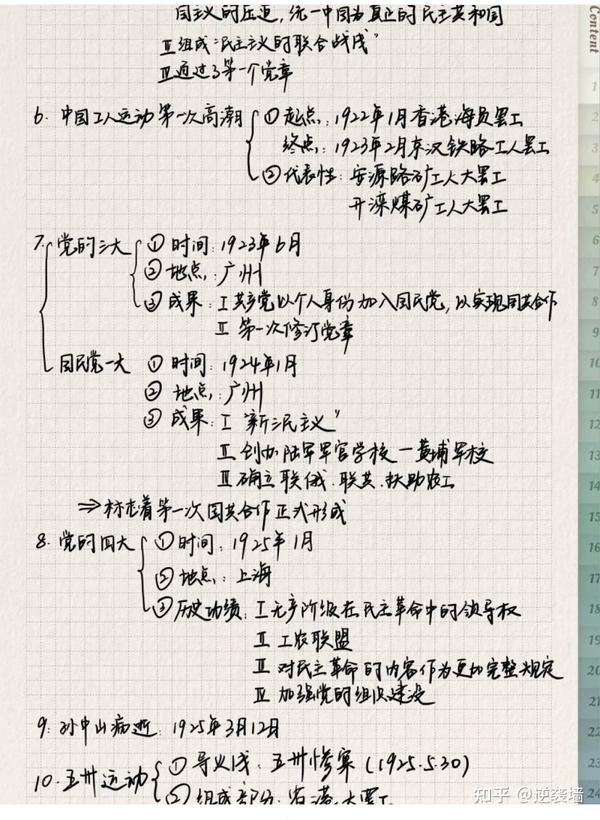 国主义的压迫，统一中国为真正的民主共和国
Ⅱ组成"民主主义的联合战线"
Ⅲ通过了第一个党章
6. 中国工人运动第一次高潮 ①起点：1922年1月香港海员罢工
终点：1923年2月京汉铁路工人罢工
②代表性：安源路矿工人大罢工
开滦煤矿工人大罢工
7. 党的三大 ①时间：1923年6月
②地点：广州
③成果：Ⅰ共产党以个人身份加入国民党，以实现国共合作
Ⅱ 第一次修订党章
国民党一大 ①时间：1924年1月
②地点：广州
③成果：Ⅰ"新三民主义"
Ⅱ创办陆军军官学校—黄埔军校
Ⅲ确立联俄、联共、扶助农工
⇒标志着第一次国共合作正式形成
8. 党的四大 ①时间：1925年1月
②地点：上海
③历史功绩：Ⅰ无产阶级在民主革命中的领导权
Ⅱ 工农联盟
Ⅱ 对民主革命的内容作为更加完整规定
Ⅳ 加强党的组织建设
9. 孙中山病逝：1925年3月12日
10. 五卅运动 ①导火线：五卅惨案（1925.5.30）
②组成部分：省港大罢工
Content
1
2
3
4
5
6
7
8
9
10
11
12
13
14
15
16
17
18
19
20
21
22
23
24
知乎 @逆袭墙